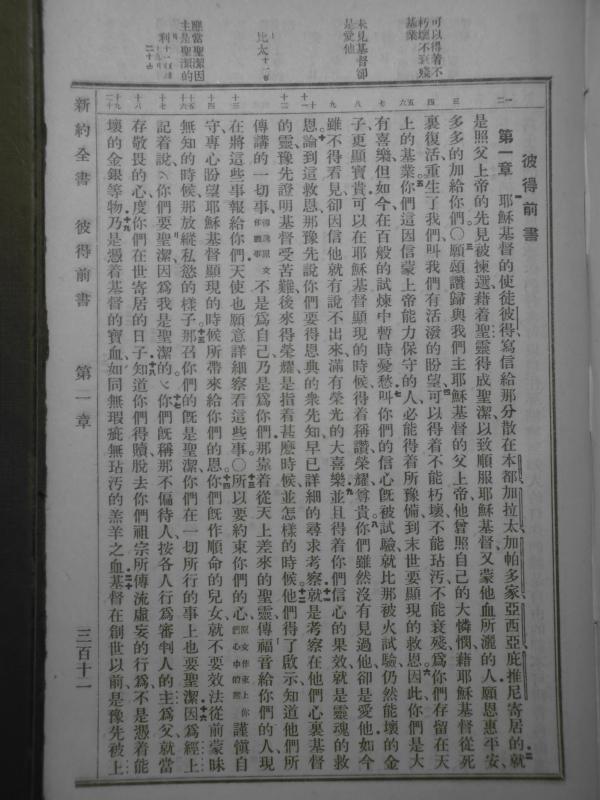 可以得着不
朽壞不衰殘
基業
未見基督卻
是愛他
應當聖潔因
主是聖潔的
彼得前書
第一章 耶穌基督的使徒彼得寫信給那分散在本都加拉太加帕多家亞西亞庇推尼寄居的就
是照父上帝的先見被揀選藉着聖靈得成聖潔以致順服耶穌基督又蒙他血所灑的人願恩惠平安
多多的加給你們〇願頌讚歸與我們主耶穌基督的父上帝他曾照自己的大憐憫藉耶穌基督從死
裏復活重生了我們叫我們有活潑的盼望可以得着不能朽壞不能玷汚不能衰殘爲你們存留在天
上的基業你們這因信蒙上帝能力保守的人必能得着所豫備到末世要顯現的救恩因此你們是大
有喜樂但如今在百般的試煉中暫時憂愁叫你們的信心既被試驗就比那被火試驗仍然能壞的金
子更顯寶貴可以在耶穌基督顯現的時候得着稱讚榮耀尊貴你們雖然沒有見過他卻是愛他如今
雖不得看見卻因信他就有說不出來滿有榮光的大喜樂並且得着你們信心的果效就是靈魂的救
恩論到這救恩那豫先說你們要得恩典的衆先知早已詳細的尋求考察就是考察在他們心裏基督
的靈豫先證明基督受苦難後來得榮耀是指着甚麽時候並怎樣的時候他們得了啟示知道他們所
傳講的一切事不是爲自己乃是爲你們那靠着從天上差來的聖靈傳福音給你們的人現
在將這些事報給你們天使也願意詳細察看這些事〇所以要約束你們的心謹愼自
守專心盼望耶穌基督顯現的時候所帶來給你們的恩你們旣作順命的兒女就不要效法從前蒙昧
無知的時候那放縱私慾的樣子那召你們的旣是聖潔你們在一切所行的事上也要聖潔因爲經上
記着說你們要聖潔因爲我是聖潔的你們旣稱那不偏待人按各人行爲審判人的主爲父就當
存敬畏的心度你們在世寄居的日子知道你們得贖脫去你們祖宗所傳流虛妄的行爲不是憑着能
壞的金銀等物乃是憑着基督的寶血如同無瑕疵無玷汚的羔羊之血基督在創世以前是豫先被上
新約全書 彼得前書 第一章 三百十一